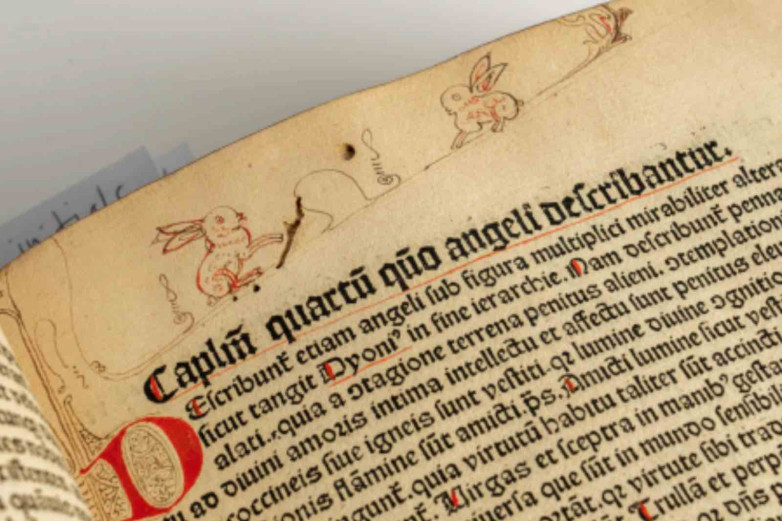 initials
Caplm̄ quartū quō angeli describantur.
Escribunt̄ etiam angeli sub figura multiplici mirabiliter altera
sicut tangit Dyoni⁹ in fine ierarchie. Nam describunt̄ penna
alati. quia a ↄtagione terrena penitus alieni. ↄtemplation
tu ad diuini amoris intima intellectu et affectu sunt penitus ele
coccineis siue igneis sunt vestiti. qꝛ lumine diuine ↄgniti
onis flāmine sūt amicti. ps. Amicti lumine sicut vest
gunt̄. quia virtutū habitu taliter sūt accinct
Virgas et sceptra in manib⁹ gesta
uersa que sūt in mundo sensibi
tāt. qꝛ virtute sibi trad
Trullā et perp
qꝛ dn̄s